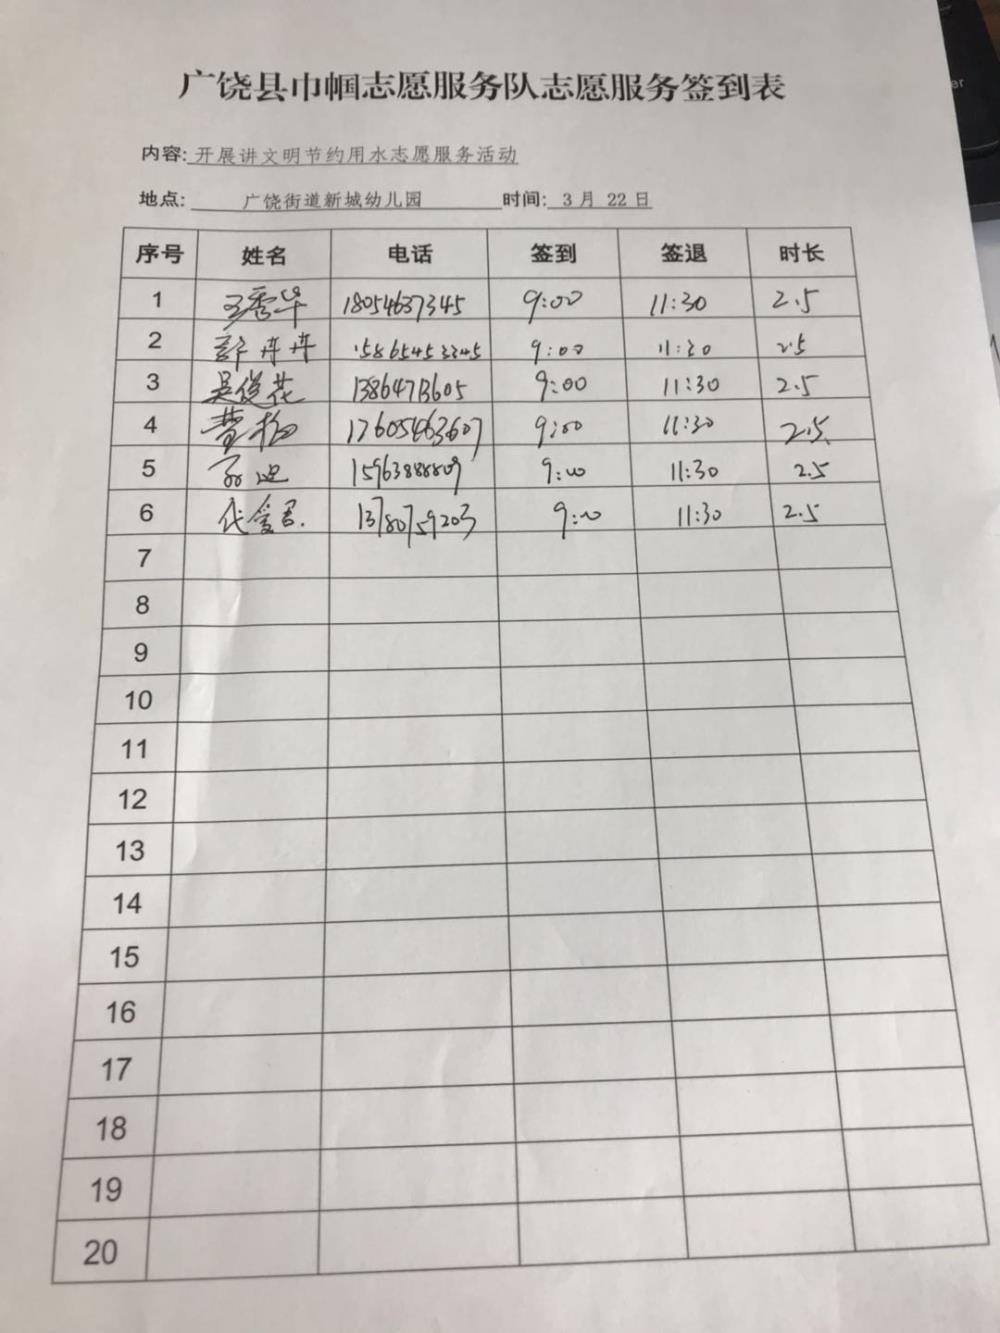 广饶县巾帼志愿服务队志愿服务签到表
内容: 开展讲文明节约用水志愿服务活动
地点: 广饶街道新城幼儿园 时间: 3 月 22 日
序号 姓名 电话 签到 签退 时长
1 王秀华 18054637345 9:00 11:30 2.5
2 许卉卉 15865453345 9:00 11:30 2.5
3 吴俊花 13864713605 9:00 11:30 2.5
4 曹梅 17605463607 9:00 11:30 2.5
5 孙迎 15963888809 9:00 11:30 2.5
6 代爱君 13780759203 9:00 11:30 2.5
7
8
9
10
11
12
13
14
15
16
17
18
19
20